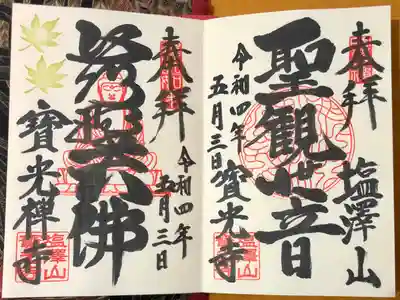 奉拝
塩澤山
聖観世音
令和四年
五月三日
寶光寺
奉拝
令和四年
五月三日
佛
寶光禅寺